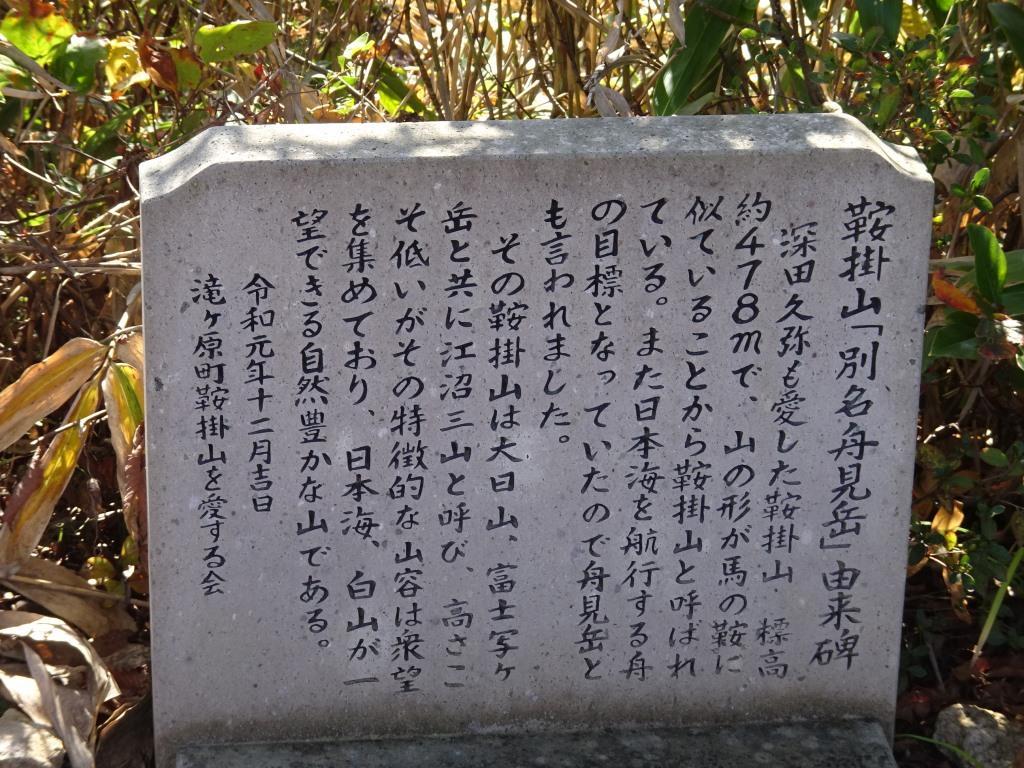 鞍掛山「別名舟見岳」由来碑
深田久弥も愛した鞍掛山 標高
約478mで、山の形が馬の鞍に
似ていることから鞍掛山と呼ばれ
ている。また日本海を航行する舟
の目標となっていたので舟見岳と
も言われました。
その鞍掛山は大日山、富士写ヶ
岳と共に江沼三山と呼び、高さこ
そ低いがその特徴的な山容は衆望
を集めており、日本海、白山が一
望できる自然豊かな山である。
令和元年十二月吉日
滝ヶ原町鞍掛山を愛する会